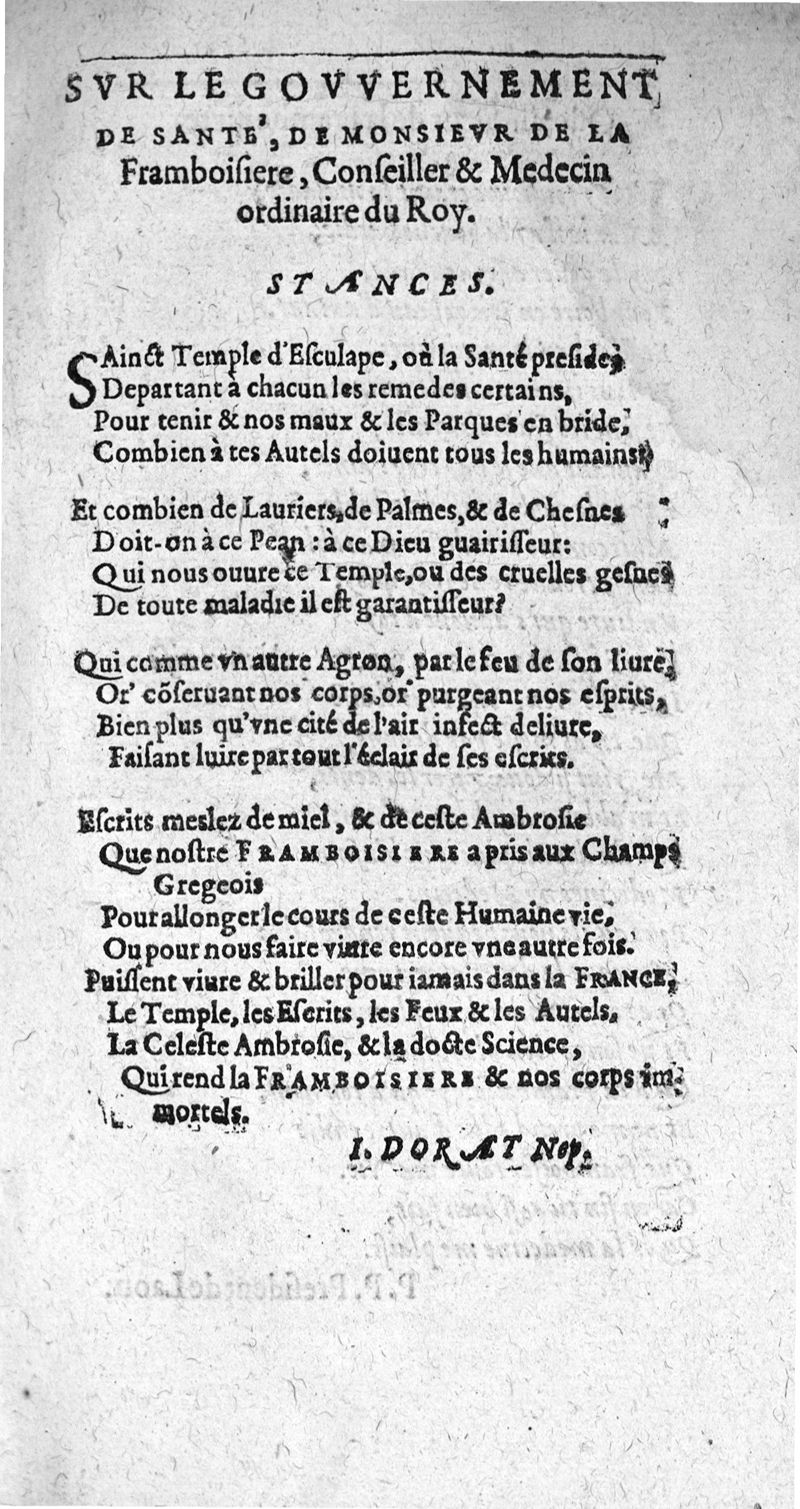 SVR LE GOVVERNEMENT
DE SANTE', DE MONSIEVR DE LA
Framboiſiere, Conſeiller & Medecin
ordinaire du Roy.
STANCES.
SAinct Temple d'Eſculape, où la Santé preſide,
Departant à chacun les remedes certains,
Pour tenir & nos maux & les Parques en bride,
Combien à tes Autels doiuent tous les humains?
Et combien de Lauriers, de Palmes, & de Cheſnes
Doit-on à ce Pean : à ce Dieu guairiſſeur:
Qui nous ouure ce Temple, ou des cruelles geſnes
De toute maladie il eſt garantiſſeur?
Qui comme vn autre Agron, par le feu de ſon liure,
Or' cõſeruant nos corps, or' purgeant nos eſprits,
Bien plus qu'vne cité de l'air infect deliure,
Faiſant luire par tout l'éclair de ſes eſcrits.
Eſcrits meslez de miel, & de ceſte Ambroſie
Que noſtre FRAMBOISIERE a pris aux Champs
Gregeois
Pour allonger le cours de ceſte Humaine vie,
Ou pour nous faire viure encore vne autre fois.
Puiſſent viure & briller pour iamais dans la FRANCE,
Le Temple, les Eſcrits, les Feux & les Autels,
La Celeſte Ambroſie, & la docte Science,
Qui rend la FRAMBOISIERE & nos corps im-
mortels.
I. DORAT Nep.
P. P. Preſident de Laon.